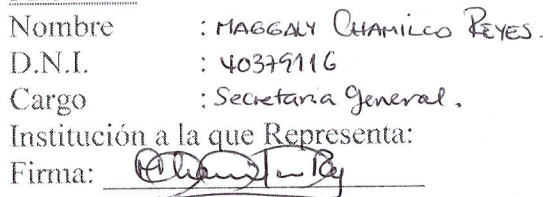 Nombre : MAGGALY CHAMILCO REYES.
D.N.I. : 40379116
Cargo : Secretaria General.
Institución a la que Representa:
Firma: